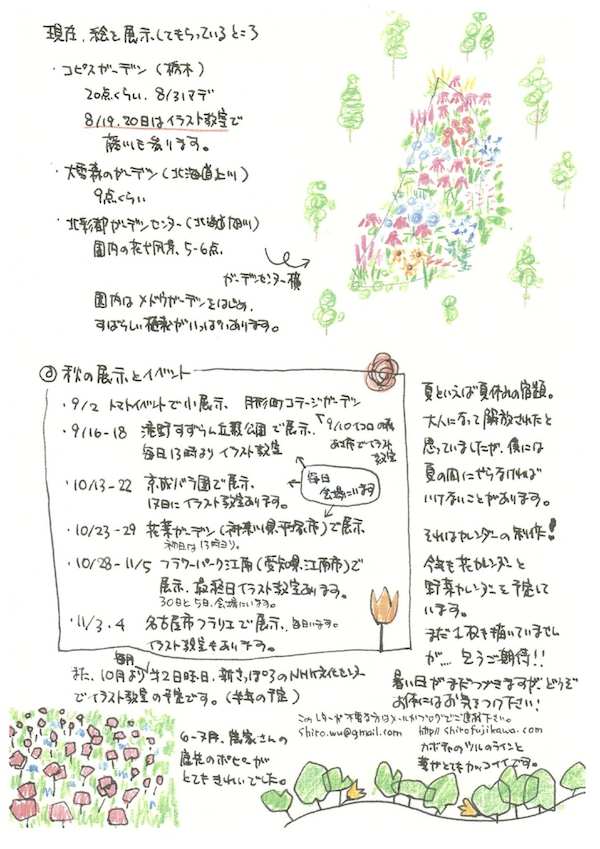 現在、絵を展示してもらっているところ
・コピスガーデン(栃木)
20点くらい、8/31マデ
8/19.20日はイラスト教室で
藤川も参ります。
・大雪森のガーデン(北海道上川)
9点くらい
・北彩都ガーデンセンター(北海道旭川)
園内の花や風景、5-6点
ガーデンセンター横
園内はメドウガーデンをはじめ、
すばらしい植栽がいっぱいあります。
秋の展示とイベント
・9/2 トマトイベントで小展示、月形町コテージガーデン
・9/16-18 滝野すずらん丘陵公園で展示、
毎日13時より イラスト教室
9/10イコロの森
でイラスト
教室
毎日
会場にいます
・10/13-22 京成バラ園で展示、
17日にイラスト教室あります。
・10/23-29 花菜ガーデン(神奈川県平塚市)で展示
初日は13時より。
・10/28-11/5 フラワーパーク江南(愛知県江南市)で
展示、最終日イラスト教室あります。
30日と5日、会場にいます。
・11/3.4 名古屋市フラリエで展示、毎日います。
イラスト教室もあります。
毎月
また、10月より第2日曜日、新さっぽろのNHK文化センター
でイラスト教室の予定です。(半年の予定)
夏といえば夏休みの宿題。
大人になって解放されたと
思っていましたが、僕には
夏の間にやらなければ
いけないことがあります。
それはカレンダーの制作!
今年も花カレンダーと
野菜カレンダーを予定して
います。
まだ1枚も描いていません
が…、乞うご期待!!
暑い日がまだつづきますが、どうぞ
お体にはお気をつけ下さい!
このレターが不要な方はメールかブログでご連絡下さい。
shiro.wu@gmail.com http://shirofujikawa.com
カボチャのツルのラインと
葉がとてもカッコイイです。
6-7月、農家さんの
庭先のポピーが
とてもきれいでした。